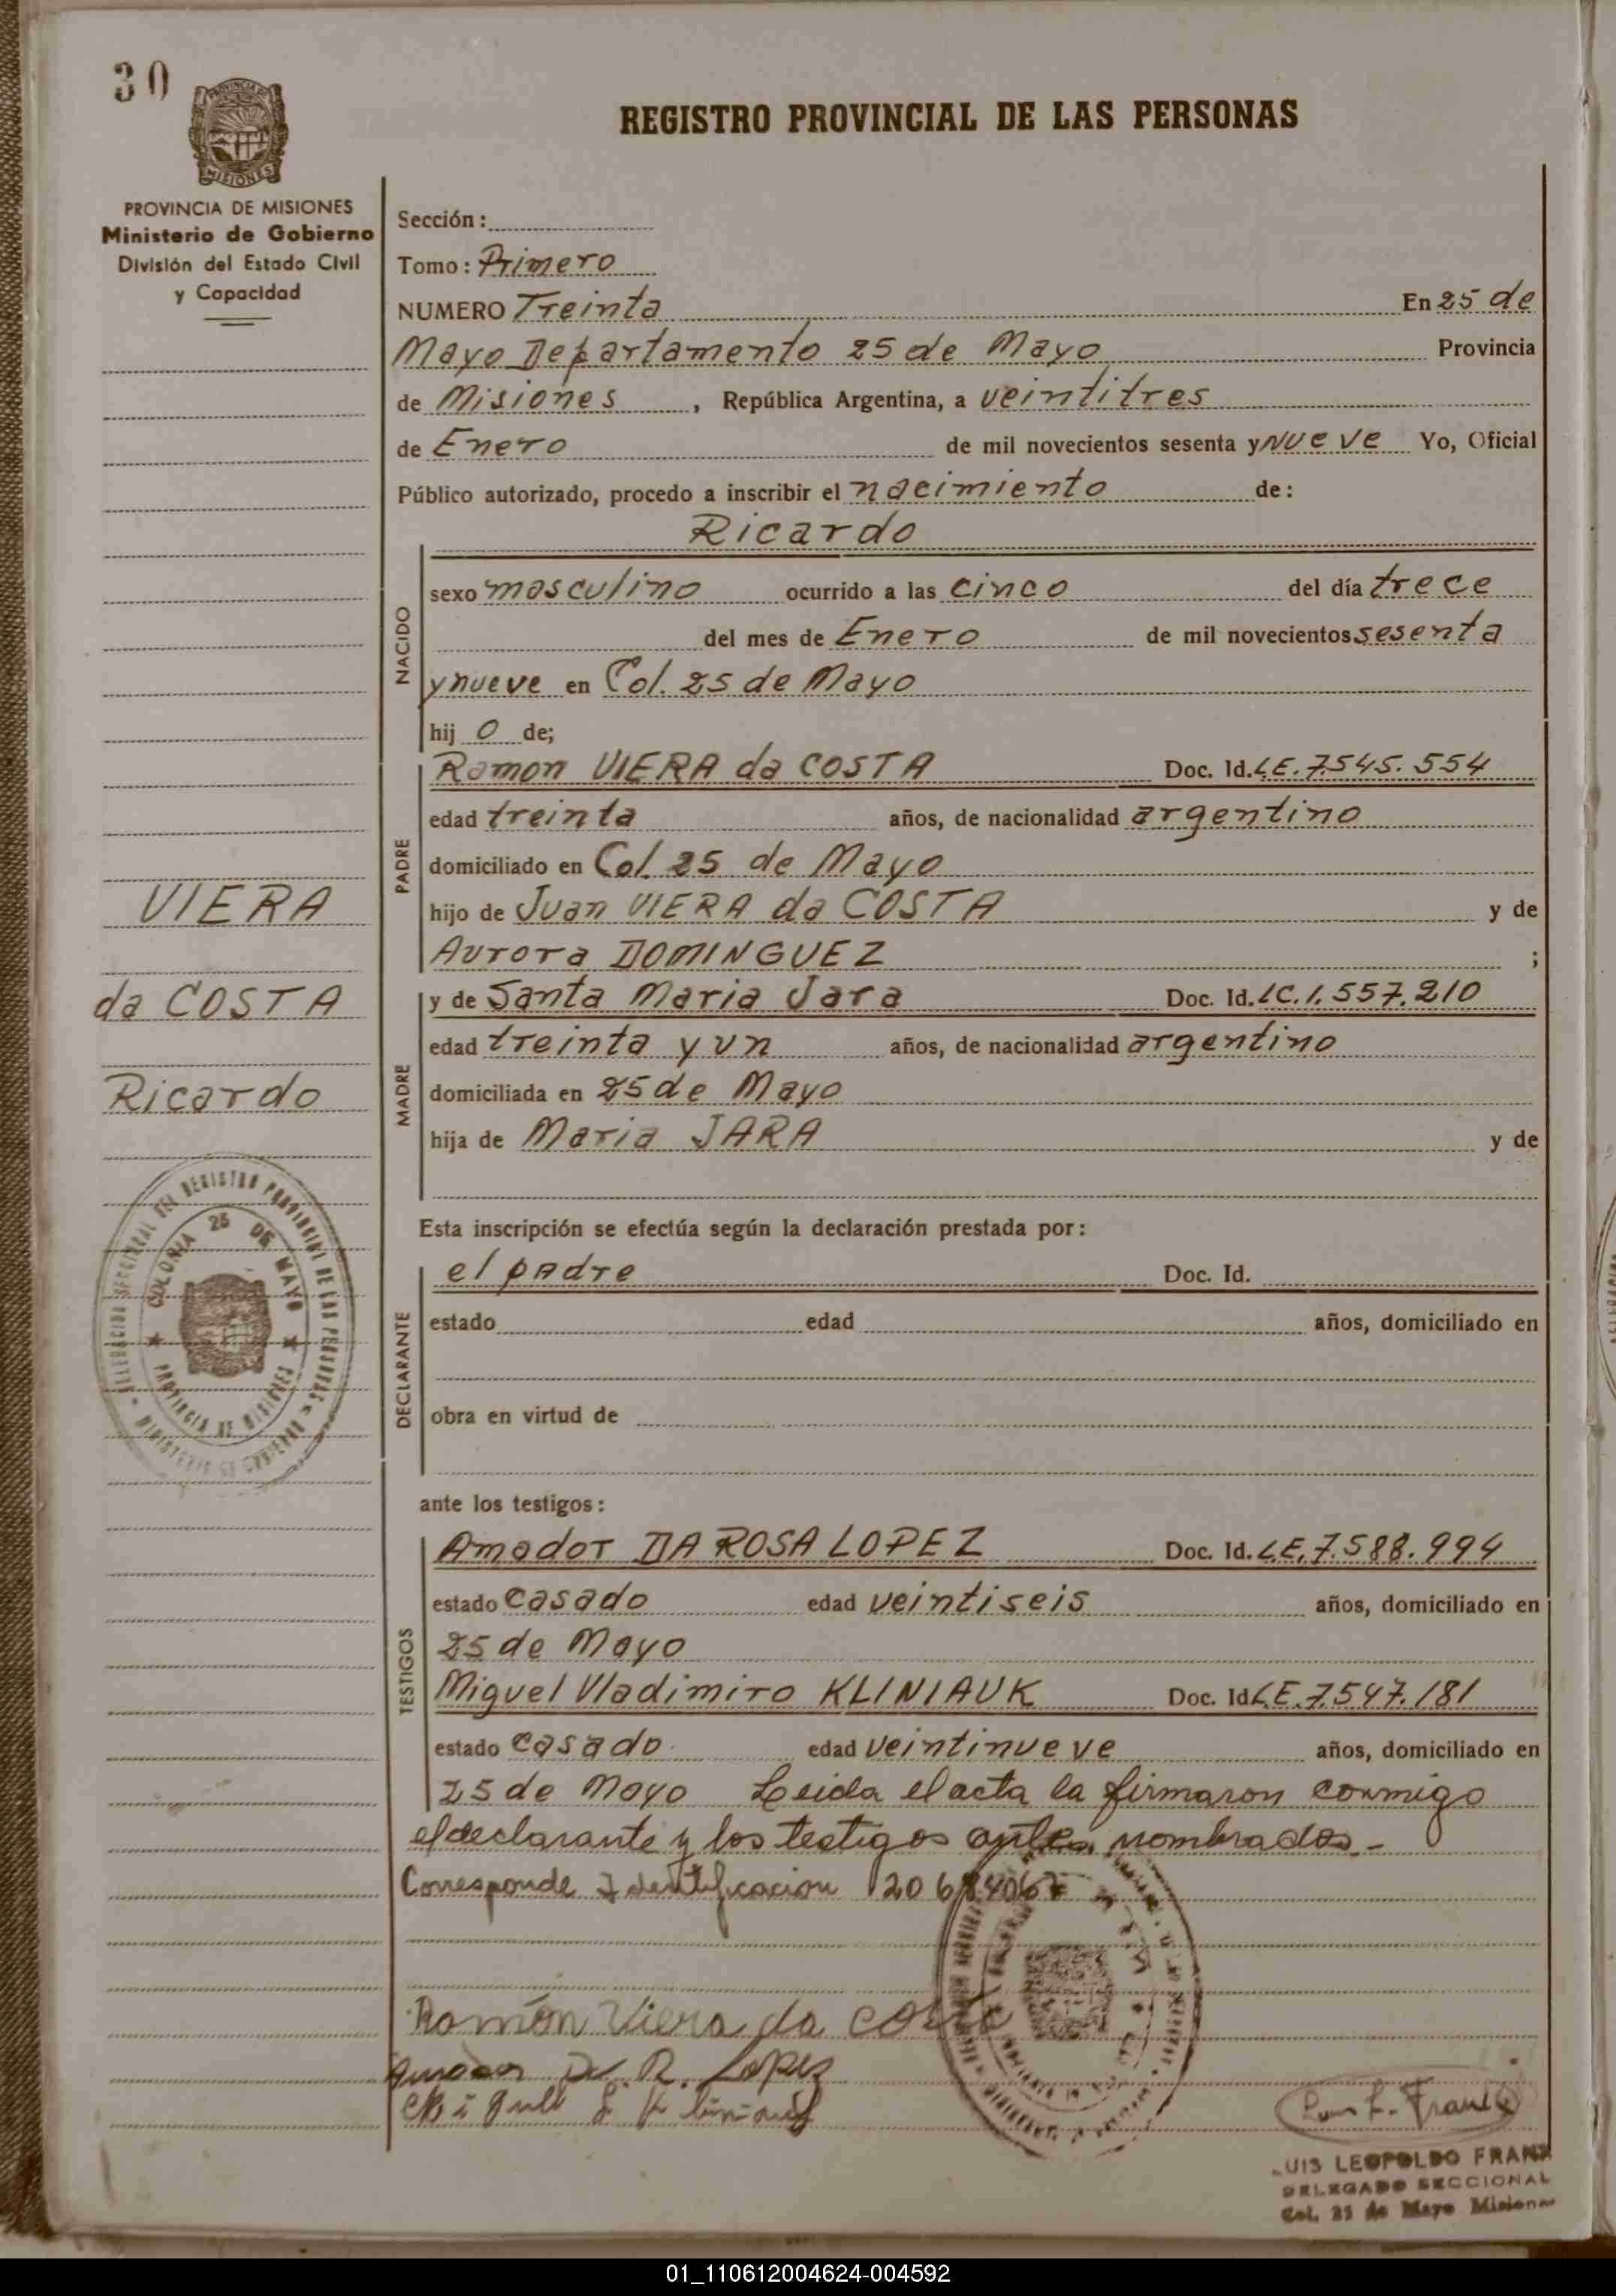 30
PROVINCIA DE
MISIONES
REGISTRO PROVINCIAL DE LAS PERSONAS
PROVINCIA DE MISIONES
Ministerio de Gobierno
División del Estado Civil
y Capacidad
Sección:
Tomo: Primero
NUMERO Treinta En 25 de
Mayo Departamento 25 de Mayo Provincia
de Misiones , República Argentina, a veintitres
de Enero de mil novecientos sesenta y nueve Yo, Oficial
Público autorizado, procedo a inscribir el nacimiento de:
Ricardo
NACIDO
sexo masculino ocurrido a las cinco del día trece
del mes de Enero de mil novecientos sesenta
y nueve en Col. 25 de Mayo
hij o de;
PADRE
Ramon VIERA da COSTA Doc. Id. L.E. 7.545.554
edad treinta años, de nacionalidad argentino
domiciliado en Col. 25 de Mayo
hijo de Juan VIERA da COSTA y de
Aurora DOMINGUEZ ;
MADRE
y de Santa Maria Jara Doc. Id. LC. 1.557.210
edad treinta y un años, de nacionalidad argentino
domiciliada en 25 de Mayo
hija de Maria JARA y de
VIERA
da COSTA
Ricardo
DELEGACION SECCIONAL DEL REGISTRO PROVINCIAL DE LAS PERSONAS
MINISTERIO DE GOBIERNO
COLONIA 25 DE MAYO
PROVINCIA DE MISIONES
Esta inscripción se efectúa según la declaración prestada por:
DECLARANTE
el padre Doc. Id.
estado edad años, domiciliado en
obra en virtud de
ante los testigos:
TESTIGOS
Amador DA ROSA LOPEZ Doc. Id. L.E. 7.588.994
estado casado edad veintiseis años, domiciliado en
25 de Mayo
Miguel Vladimiro KLINIAUK Doc. Id L.E. 7.547.181
estado casado edad veintinueve años, domiciliado en
25 de Mayo Leida el acta la firmaron conmigo
el declarante y los testigos antes nombrados -
Corresponde Identificacion
Ramón Viera da Costa
Amador D. R. Lopez
Luis L. Franz
LUIS LEOPOLDO FRANZ
DELEGADO SECCIONAL
Col. 25 de Mayo Misiones
01_110612004624-004592